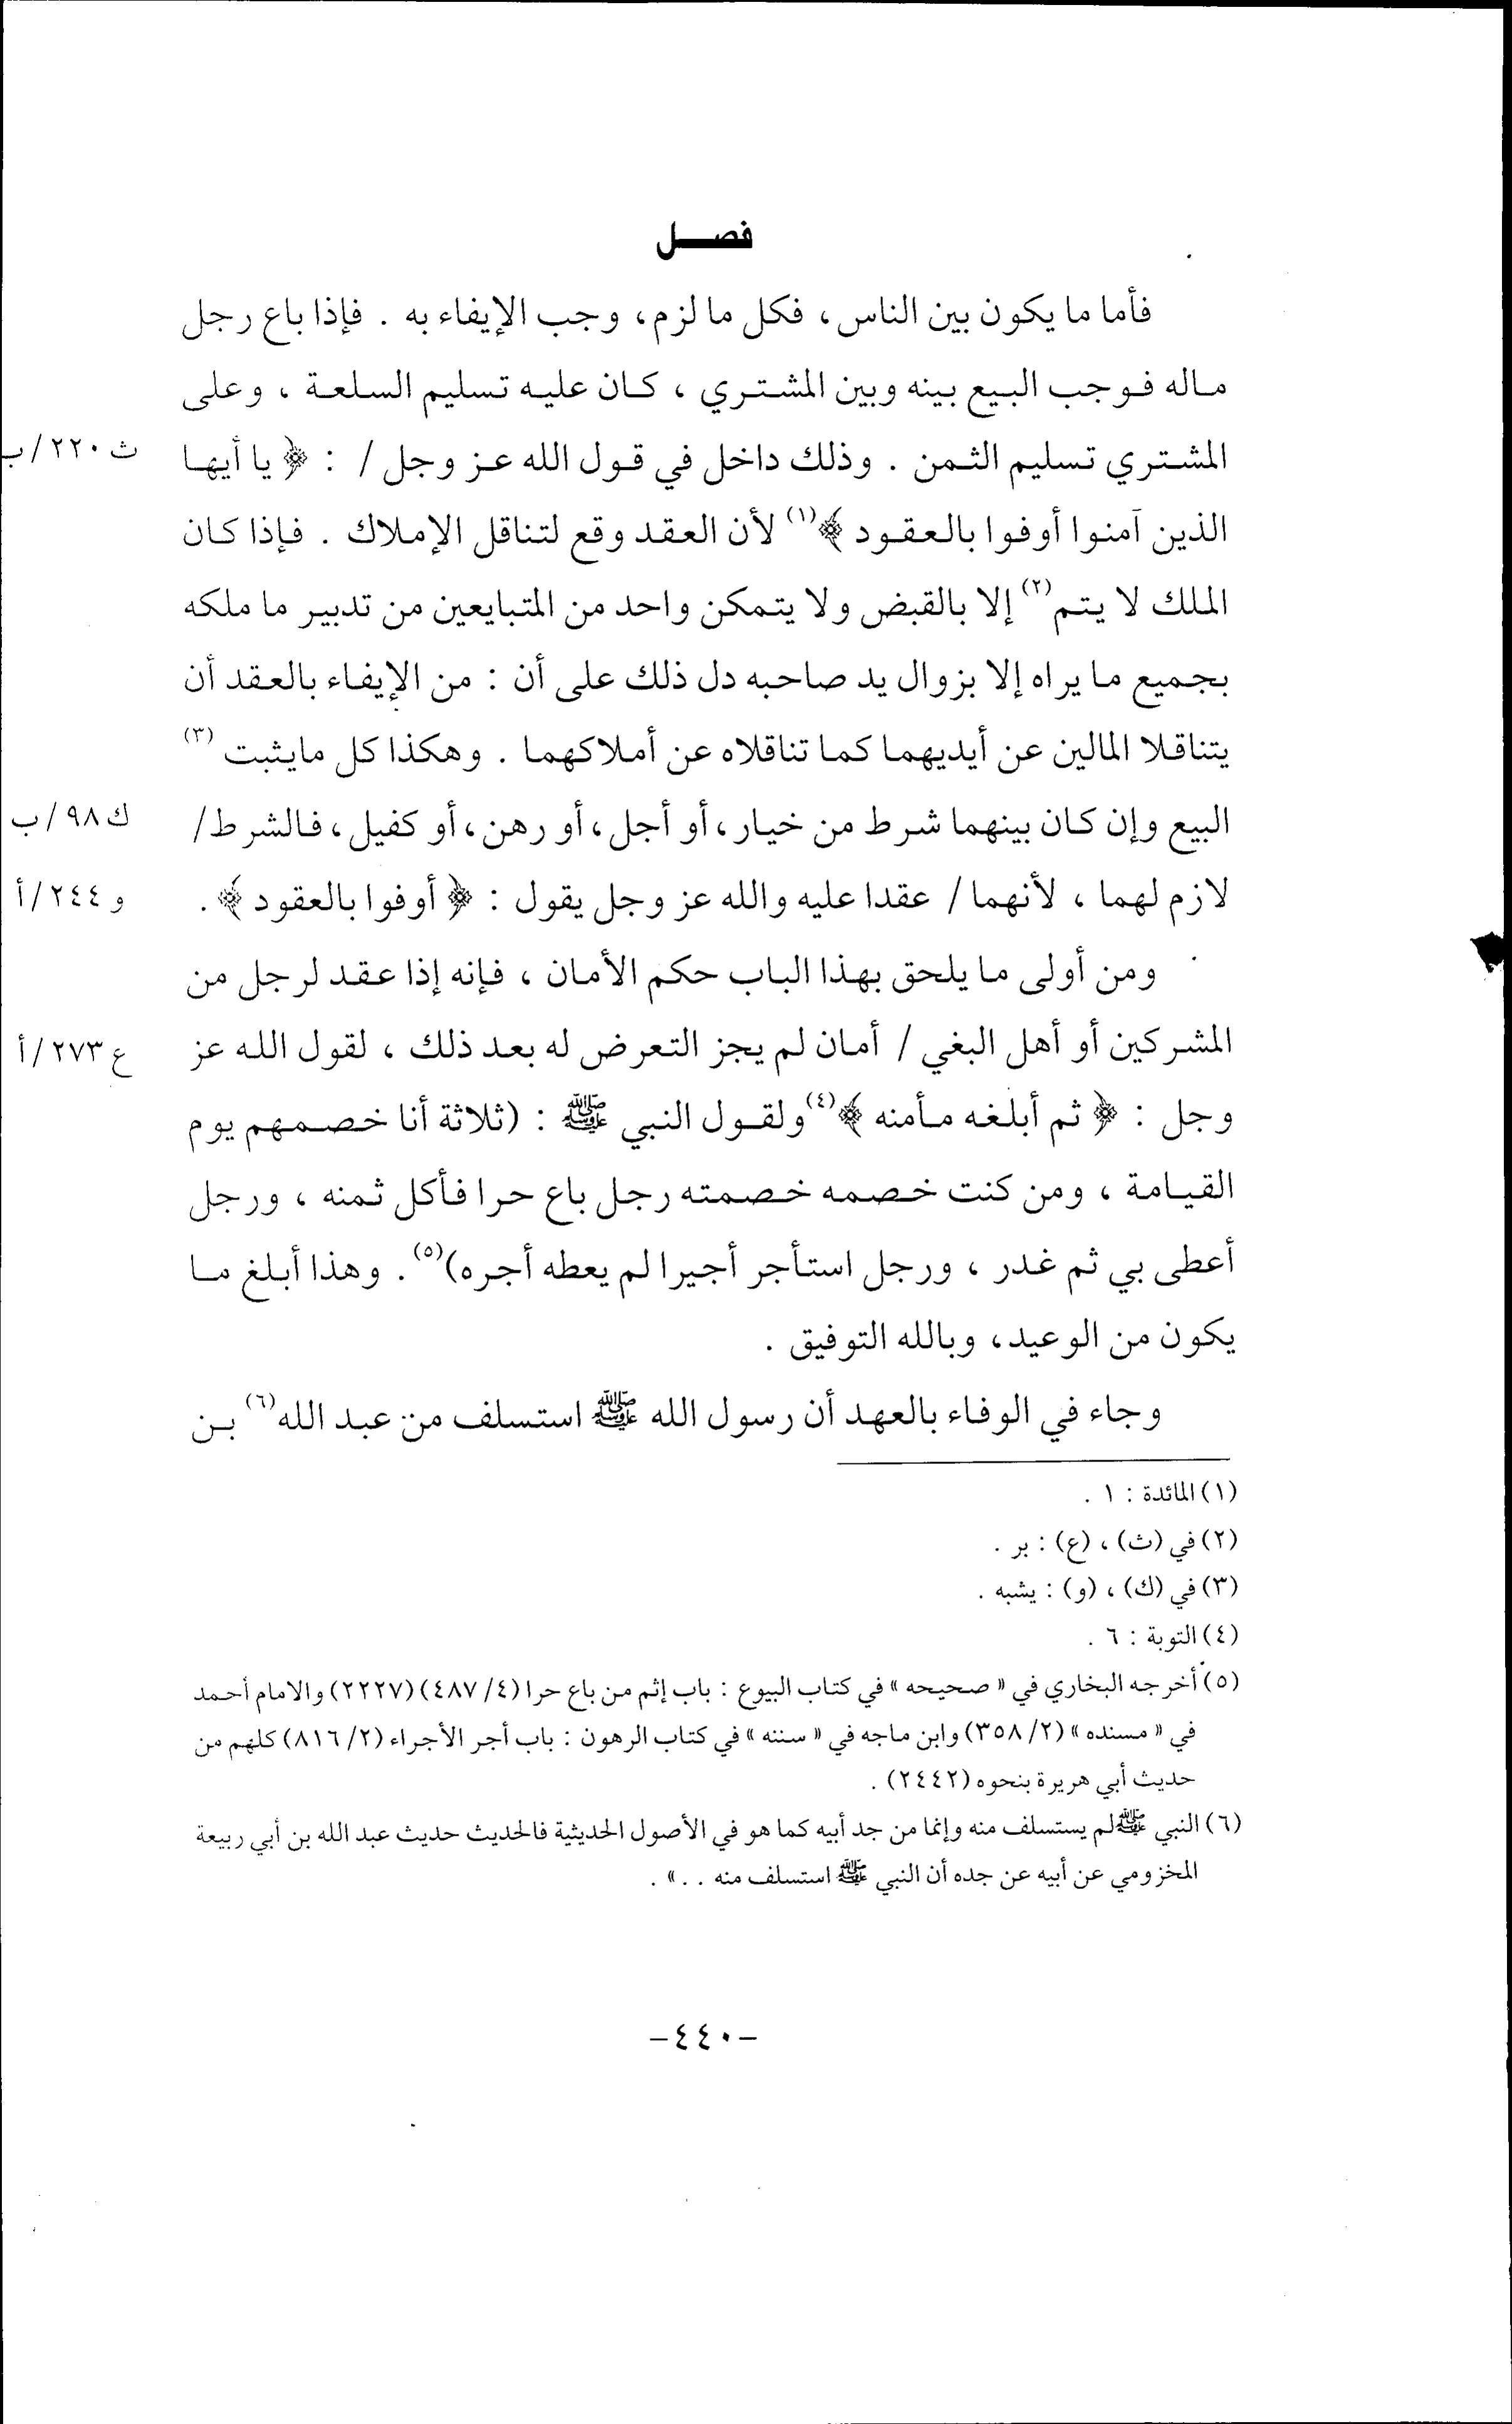 فصـــل
فأما ما يكون بين الناس، فكل ما لزم، وجب الإيفاء به . فإذا باع رجل
مـاله فـوجب البـيع بـينه وبين المشـتـري ، كـان عليـه تسليم السلعـة ، وعلى
المشـتري تسليم الثـمن . وذلك داخل في قـول الله عـز وجل / : ﴿ يا أيهـا
ث ٢٢٠/ب
الذين آمنـوا أوفـوا بالـعقـود ﴾(١) لأن العقـد وقع لتناقل الإملاك . فـإذا كـان
الملك لا يتم(٢) إلا بالقبض ولا يتمكن واحد من المتبايعين من تدبير ما ملكه
بجميع ما يراه إلا بزوال يد صاحبه دل ذلك على أن : من الإيفـاء بالعـقد أن
يتناقـلا المالين عن أيديهمـا كمـا تناقلاه عن أملاكهمـا . وهكذا كل مايثبت (٣)
البيع وإن كـان بينهمـا شرط من خيـار، أو أجل، أو رهن، أو كفيل، فـالشرط/
ك ٩٨/ب
لازم لهمـا ، لأنهمـا / عقدا عليه والله عز وجل يقول : ﴿ أوفوا بالعقود ﴾ .
و ٢٤٤/أ
ومن أولى ما يلحق بهـذا البـاب حكم الأمـان ، فـإنه إذا عـقـد لرجل من
المشركين أو أهل البغي / أمـان لم يجز التعرض له بعـد ذلك ، لقول اللـه عز
ع ٢٧٣/أ
وجل : ﴿ ثم أبلـغـه مـأمنه ﴾(٤) ولقـول النبي ﷺ : (ثلاثة أنا خـصـمـهم يوم
القيـامـة ، ومن كنت خـصـمـه خـصـمـته رجل باع حرا فـأكل ثـمنه ، ورجل
أعطى بي ثم غـدر ، ورجل استـأجر أجيرا لم يعطه أجـره)(٥) . وهـذا أبـلغ مـا
يكون من الوعيد، وبالله التوفيق .
وجاء في الوفـاء بالعهـد أن رسول الله ﷺ استسلف من عبـد الله(٦) بـن
(١) المائدة : ١ .
(٢) في (ث) ، (ع) : بر .
(٣) في (ك) ، (و) : يشبه .
(٤) التوبة : ٦ .
(٥) أخرجـه البخاري في « صحيحه » في كتاب البيوع : باب إثم من باع حرا (٤/ ٤٨٧) (٢٢٢٧) والامام أحـمد
في « مسنده » (٢/ ٣٥٨) وابن مـاجه في « سننه » في كتاب الرهون : باب أجر الأجراء (٢/ ٨١٦) كلهم من
حديث أبي هريرة بنحوه (٢٤٤٢) .
(٦) النبي ﷺ لم يستسلف منه وإنما من جد أبيه كما هو في الأصول الحديثية فالحديث حديث عبد الله بن أبي ربيعة
المخزومي عن أبيه عن جده أن النبي ﷺ استسلف منه . . » .
-٤٤٠-